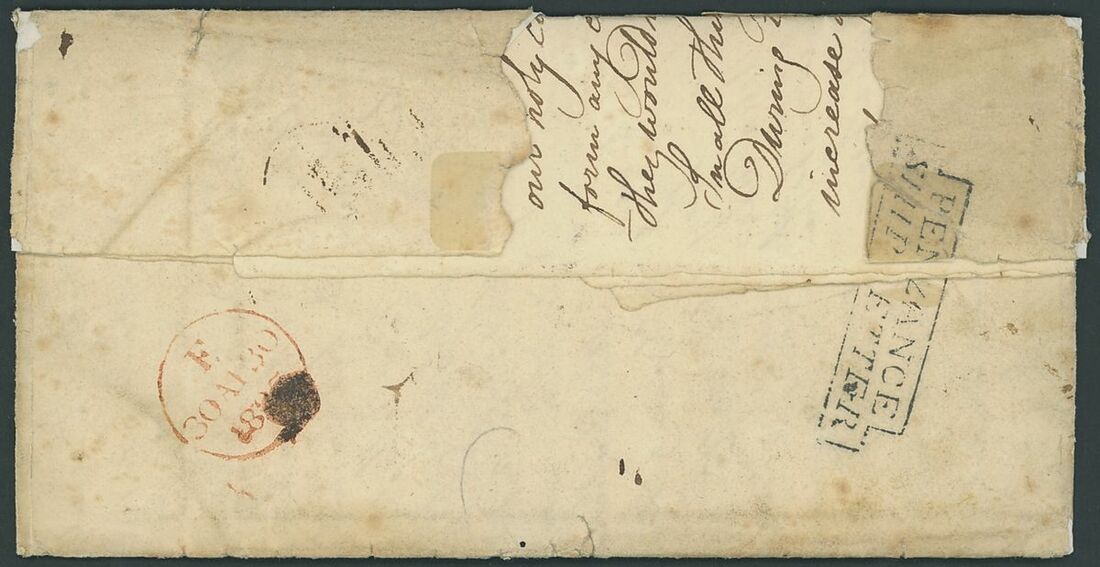 our holy
form any
they would
In all
During
increase
PENZANCE
SHIP LETTER
F
30 AU 30